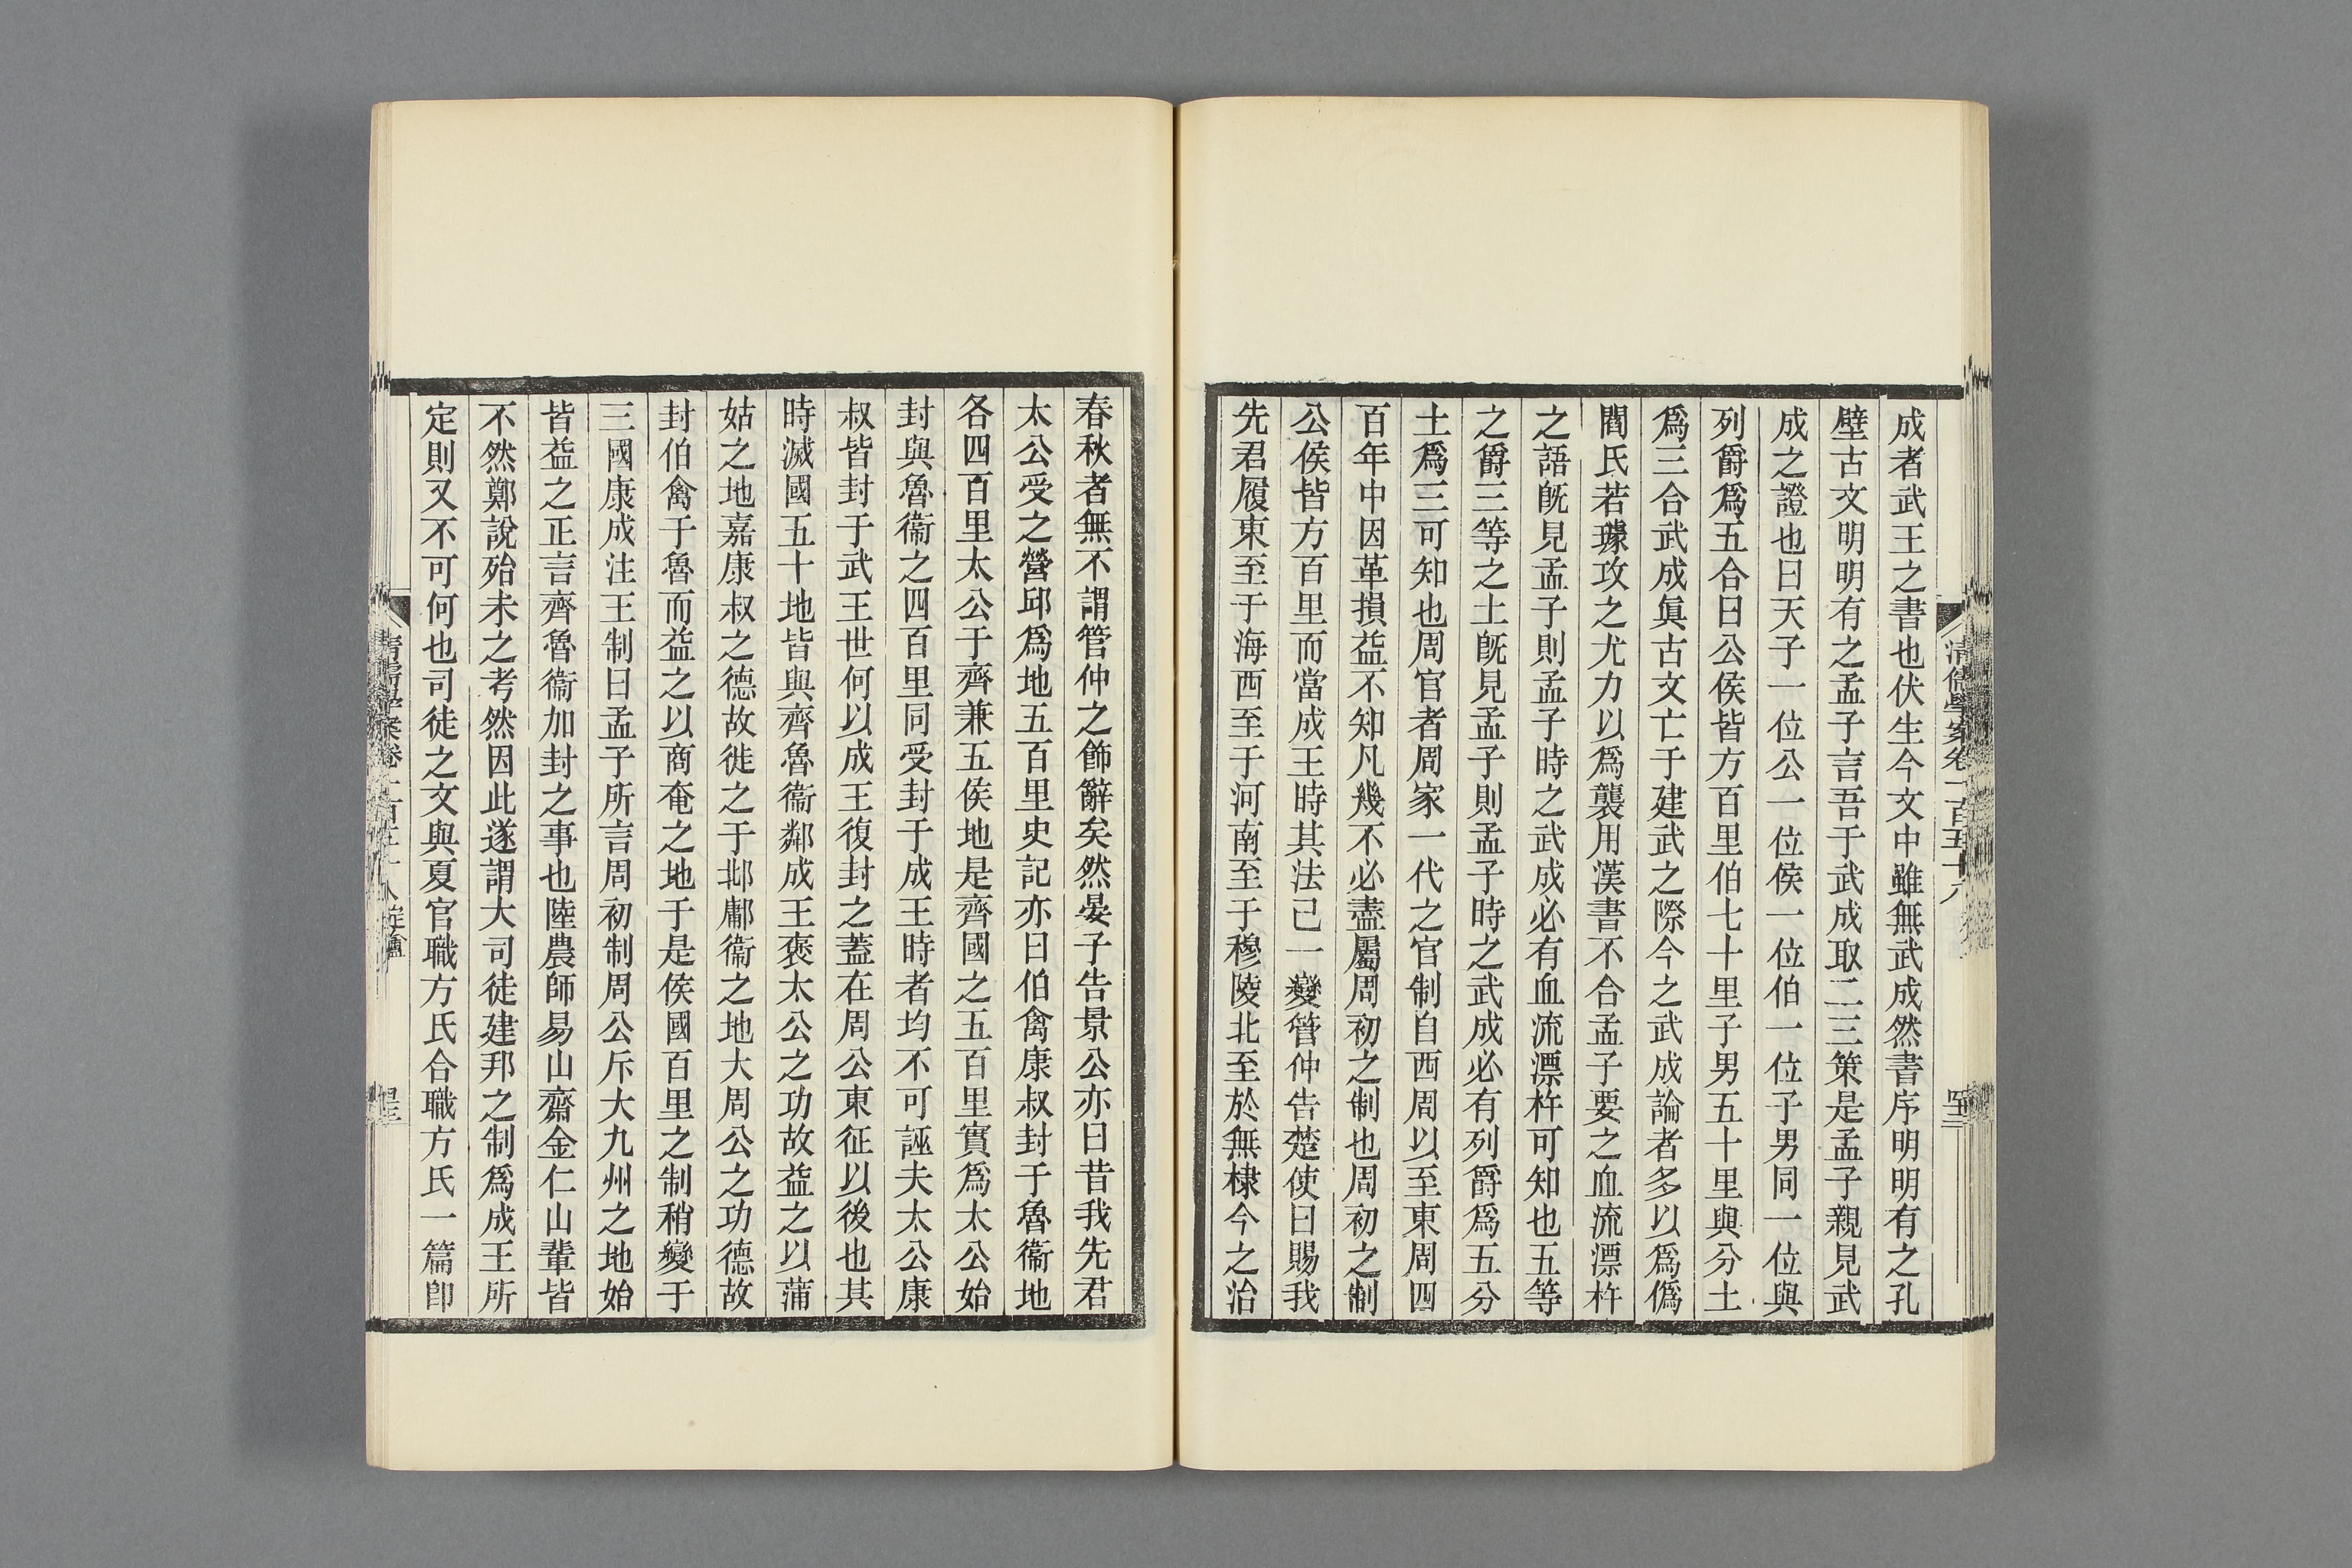 成者武王之書也伏生今文中雖無武成然書序明明有之孔
壁古文明明有之孟子言吾于武成取二三策是孟子親見武
成之證也曰天子一位公一位侯一位伯一位子男同一位與
列爵爲五合曰公侯皆方百里伯七十里子男五十里與分土
爲三合武成眞古文亡于建武之際今之武成論者多以爲僞
閻氏若璩攻之尤力以爲襲用漢書不合孟子要之血流漂杵
之語旣見孟子則孟子時之武成必有血流漂杵可知也五等
之爵三等之土旣見孟子則孟子時之武成必有列爵爲五分
土爲三可知也周官者周家一代之官制自西周以至東周四
百年中因革損益不知凡幾不必盡屬周初之制也周初之制
公侯皆方百里而當成王時其法已一變管仲告楚使曰賜我
先君履東至于海西至于河南至于穆陵北至於無棣今之治
清儒學案卷一百五十八
春秋者無不謂管仲之飾辭矣然晏子告景公亦曰昔我先君
太公受之營邱爲地五百里史記亦曰伯禽康叔封于魯衞地
各四百里太公于齊兼五侯地是齊國之五百里實爲太公始
封與魯衞之四百里同受封于成王時者均不可誣夫太公康
叔皆封于武王世何以成王復封之蓋在周公東征以後也其
時滅國五十地皆與齊魯衞鄰成王褒太公之功故益之以蒲
姑之地嘉康叔之德故徙之于邶鄘衞之地大周公之功德故
封伯禽于魯而益之以商奄之地于是侯國百里之制稍變于
三國康成注王制曰孟子所言周初制周公斥大九州之地始
皆益之正言齊魯衞加封之事也陸農師易山齋金仁山輩皆
不然鄭說殆未之考然因此遂謂大司徒建邦之制爲成王所
定則又不可何也司徒之文與夏官職方氏合職方氏一篇卽